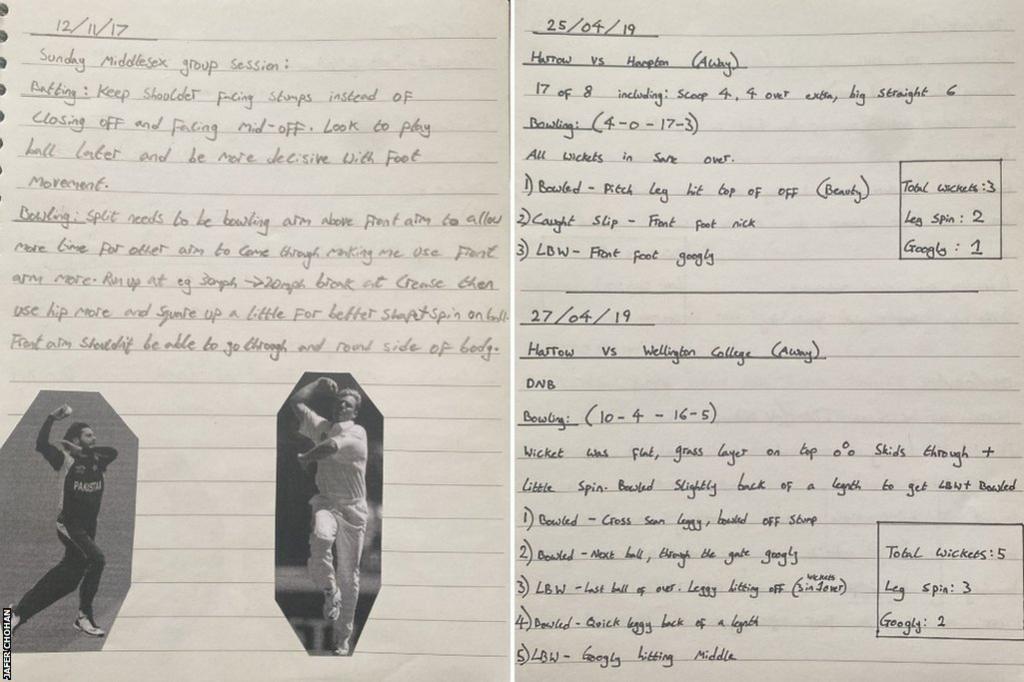 12/11/17
Sunday Middlesex group session:
Batting: Keep shoulder facing stumps instead of
closing off and facing mid-off. Look to play
ball later and be more decisive with foot
movement.
Bowling: Split needs to be bowling arm above front arm to allow
more time for other arm to come through making me use front
arm more. Run up at eg 30mph → 20mph break at crease then
use hip more and square up a little for better shape + spin on ball.
Front arm shouldn't be able to go through and round side of body.
PAKISTAN
JAFER CHOHAN
25/04/19
Harrow vs Hampton (Away)
17 of 8 including: Scoop 4, 4 over extra, big straight 6
Bowling: (4-0-17-3)
All wickets in same over.
1) Bowled - Pitch leg hit top of off (Beauty)
2) Caught Slip - Front foot nick
3) LBW - Front foot googly
Total wickets: 3
Leg Spin: 2
Googly: 1
27/04/19
Harrow vs Wellington College (Away)
DNB
Bowling: (10-4-16-5)
Wicket was flat, grass layer on top o°o Skids through +
Little Spin. Bowled Slightly back of a legnth to get LBW + Bowled
1) Bowled - Cross seam leggy, bowled off stump
2) Bowled - Next ball, through the gate googly
3) LBW - Last ball of over. Leggy hitting off (3 wickets in 1 over)
4) Bowled - Quick leggy back of a legnth
5) LBW - Googly hitting Middle
Total wickets: 5
Leg Spin: 3
Googly: 2